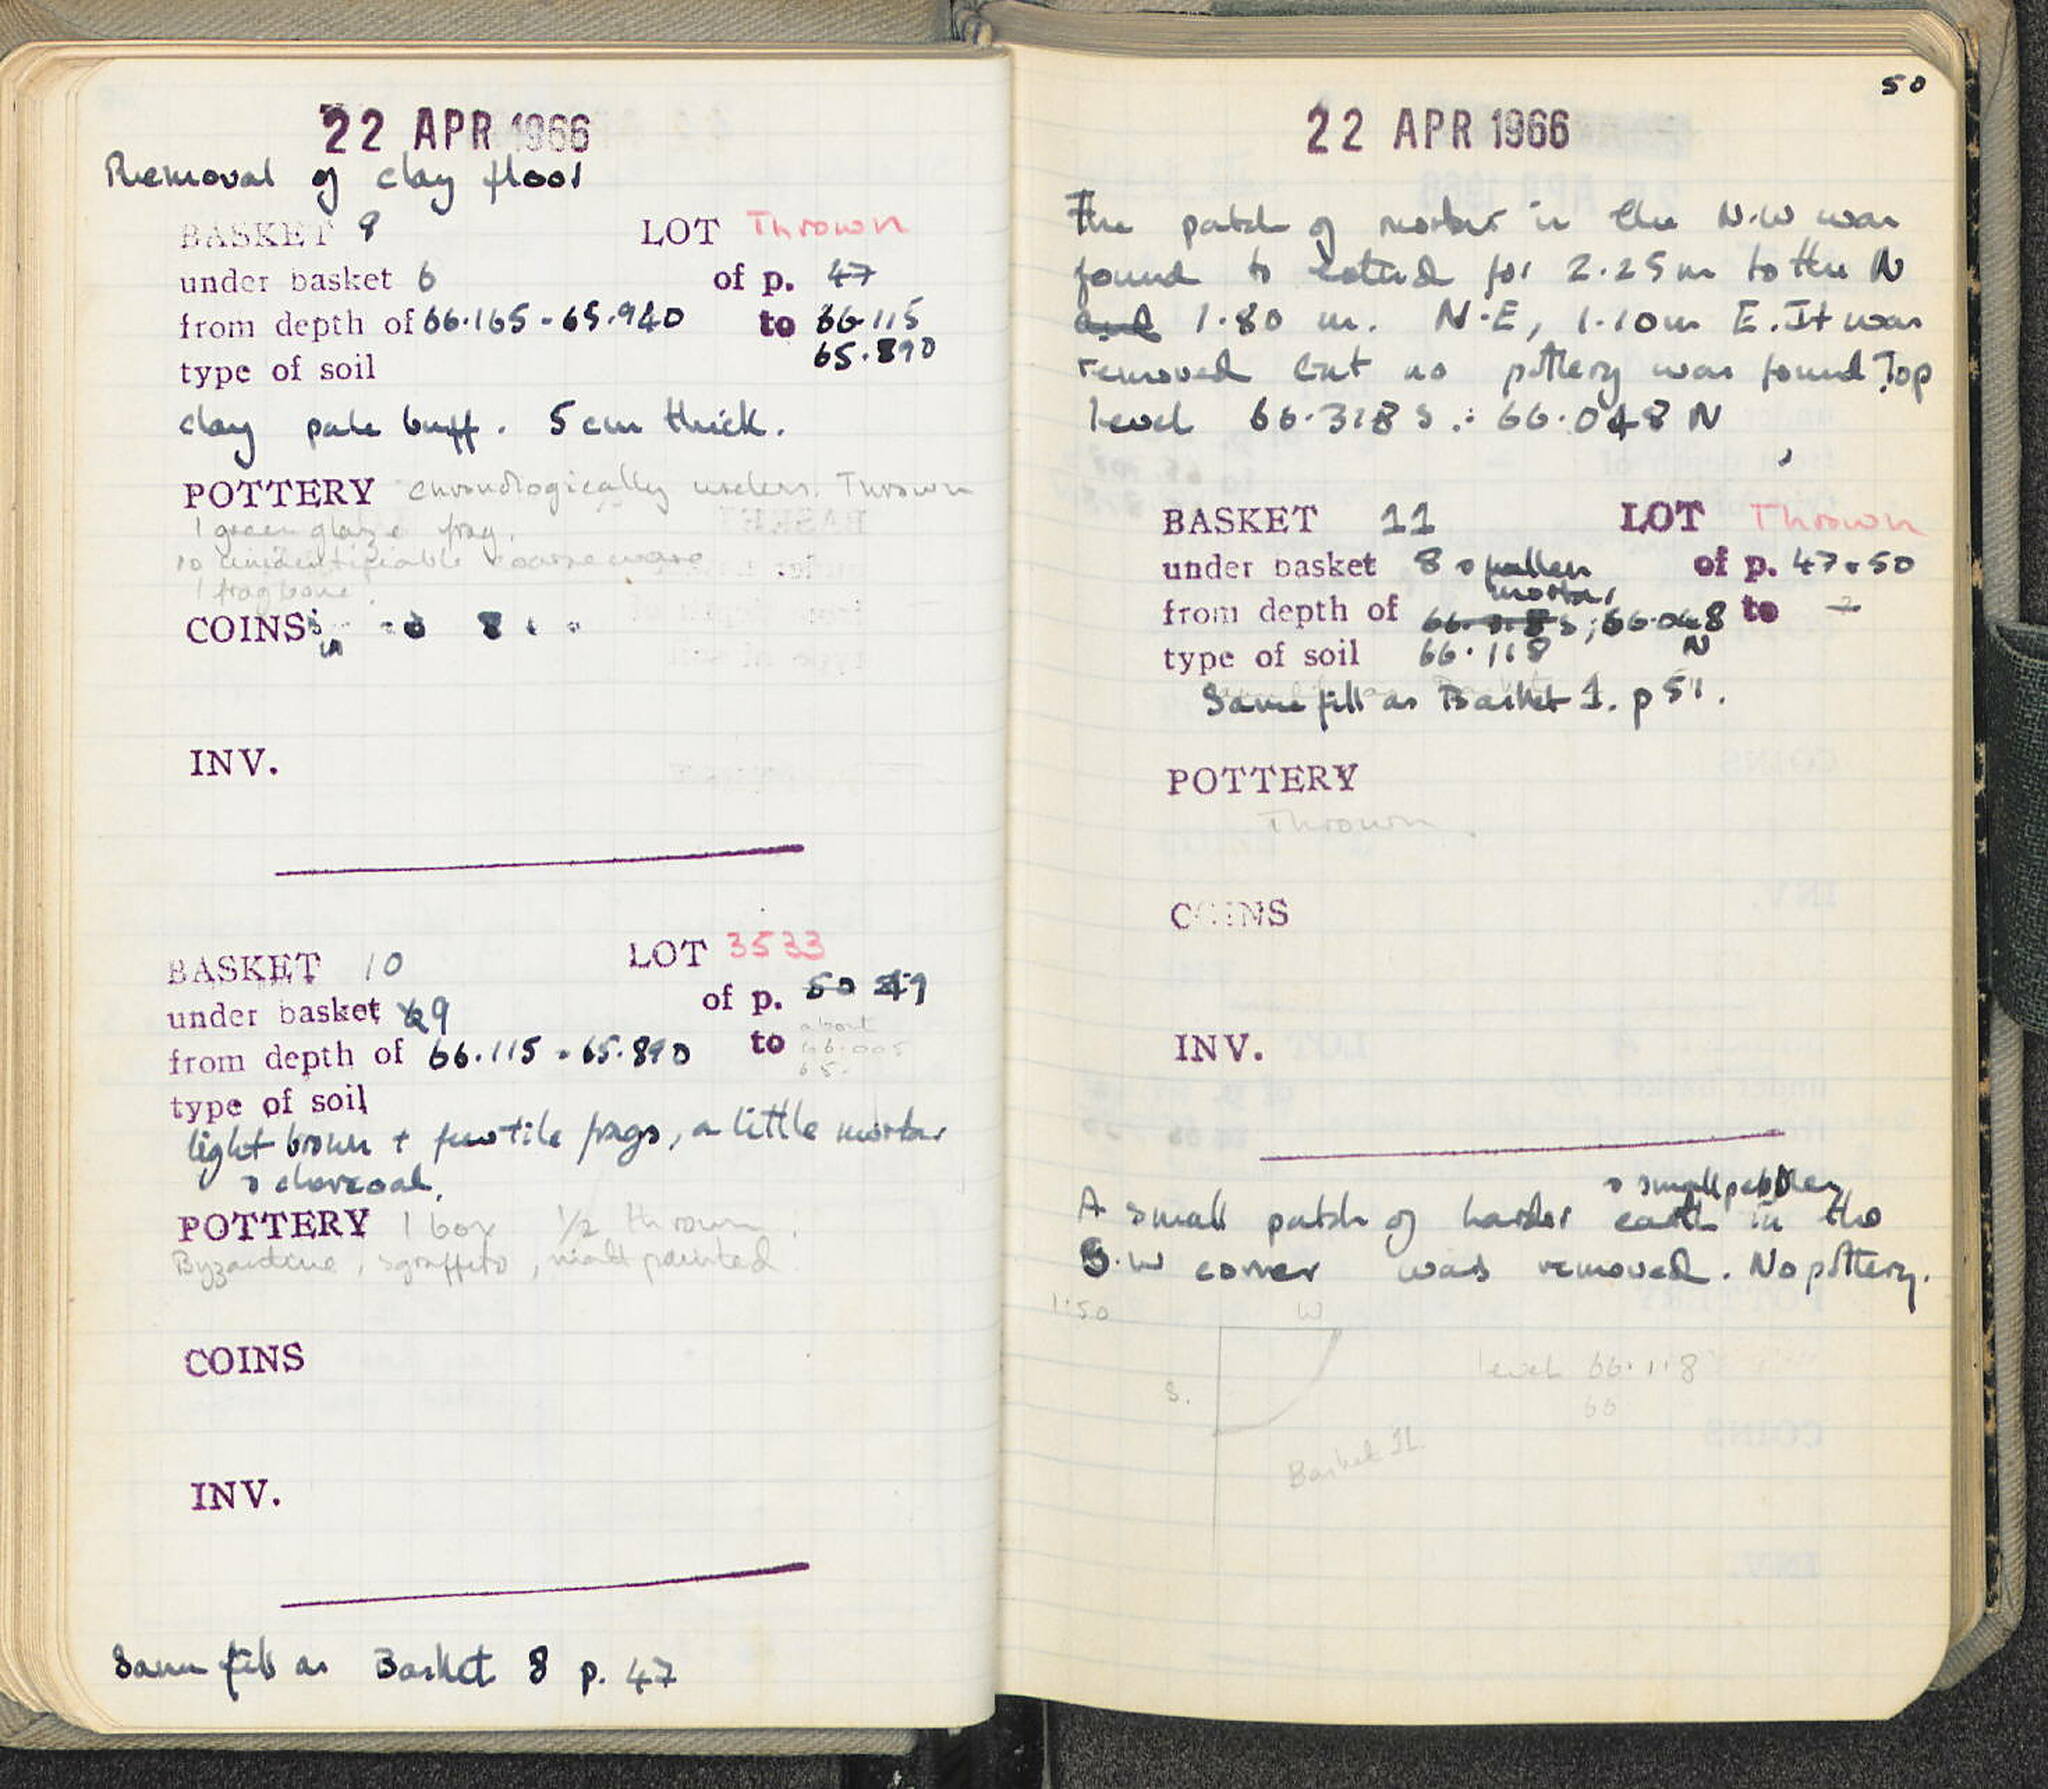 22 APR 1966
Removal of clay floor
BASKET 9 LOT Thrown
under basket 6 of p. 47
from depth of 66.165 - 65.940 to 66.115
65.890
type of soil
clay pale buff. 5 cm thick.
POTTERY chronologically useless. Thrown
1 green glaze frag.
10 unidentifiable coarse ware
1 frag bone.
COINS
INV.
BASKET 10 LOT 3533
under basket 9 of p. 50 49
from depth of 66.115 - 65.890 to about
66.005
65.
type of soil
light brown + few tile frags, a little mortar
& charcoal.
POTTERY 1 box 1/2 thrown.
Byzantine, sgraffito, matt painted
COINS
INV.
Same fill as Basket 8 p. 47
50
22 APR 1966
The patch of mortar in the N.W was
found to extend for 2.25m to the N
and 1.80 m. N.E, 1.10m E. It was
removed but no pottery was found. Top
level 66.318 S .: 66.048 N
BASKET 11 LOT Thrown
under basket 8 & fallen of p. 47 & 50
mortar
from depth of S; 66.048 to
type of soil 66.118 N
Same fill as Basket 1. p 51.
POTTERY
Thrown.
COINS
INV.
& small pebbles
A small patch of harder earth in the
S.W corner was removed. No pottery.
1:50 W
level 66.118
S.
66
Basket 11